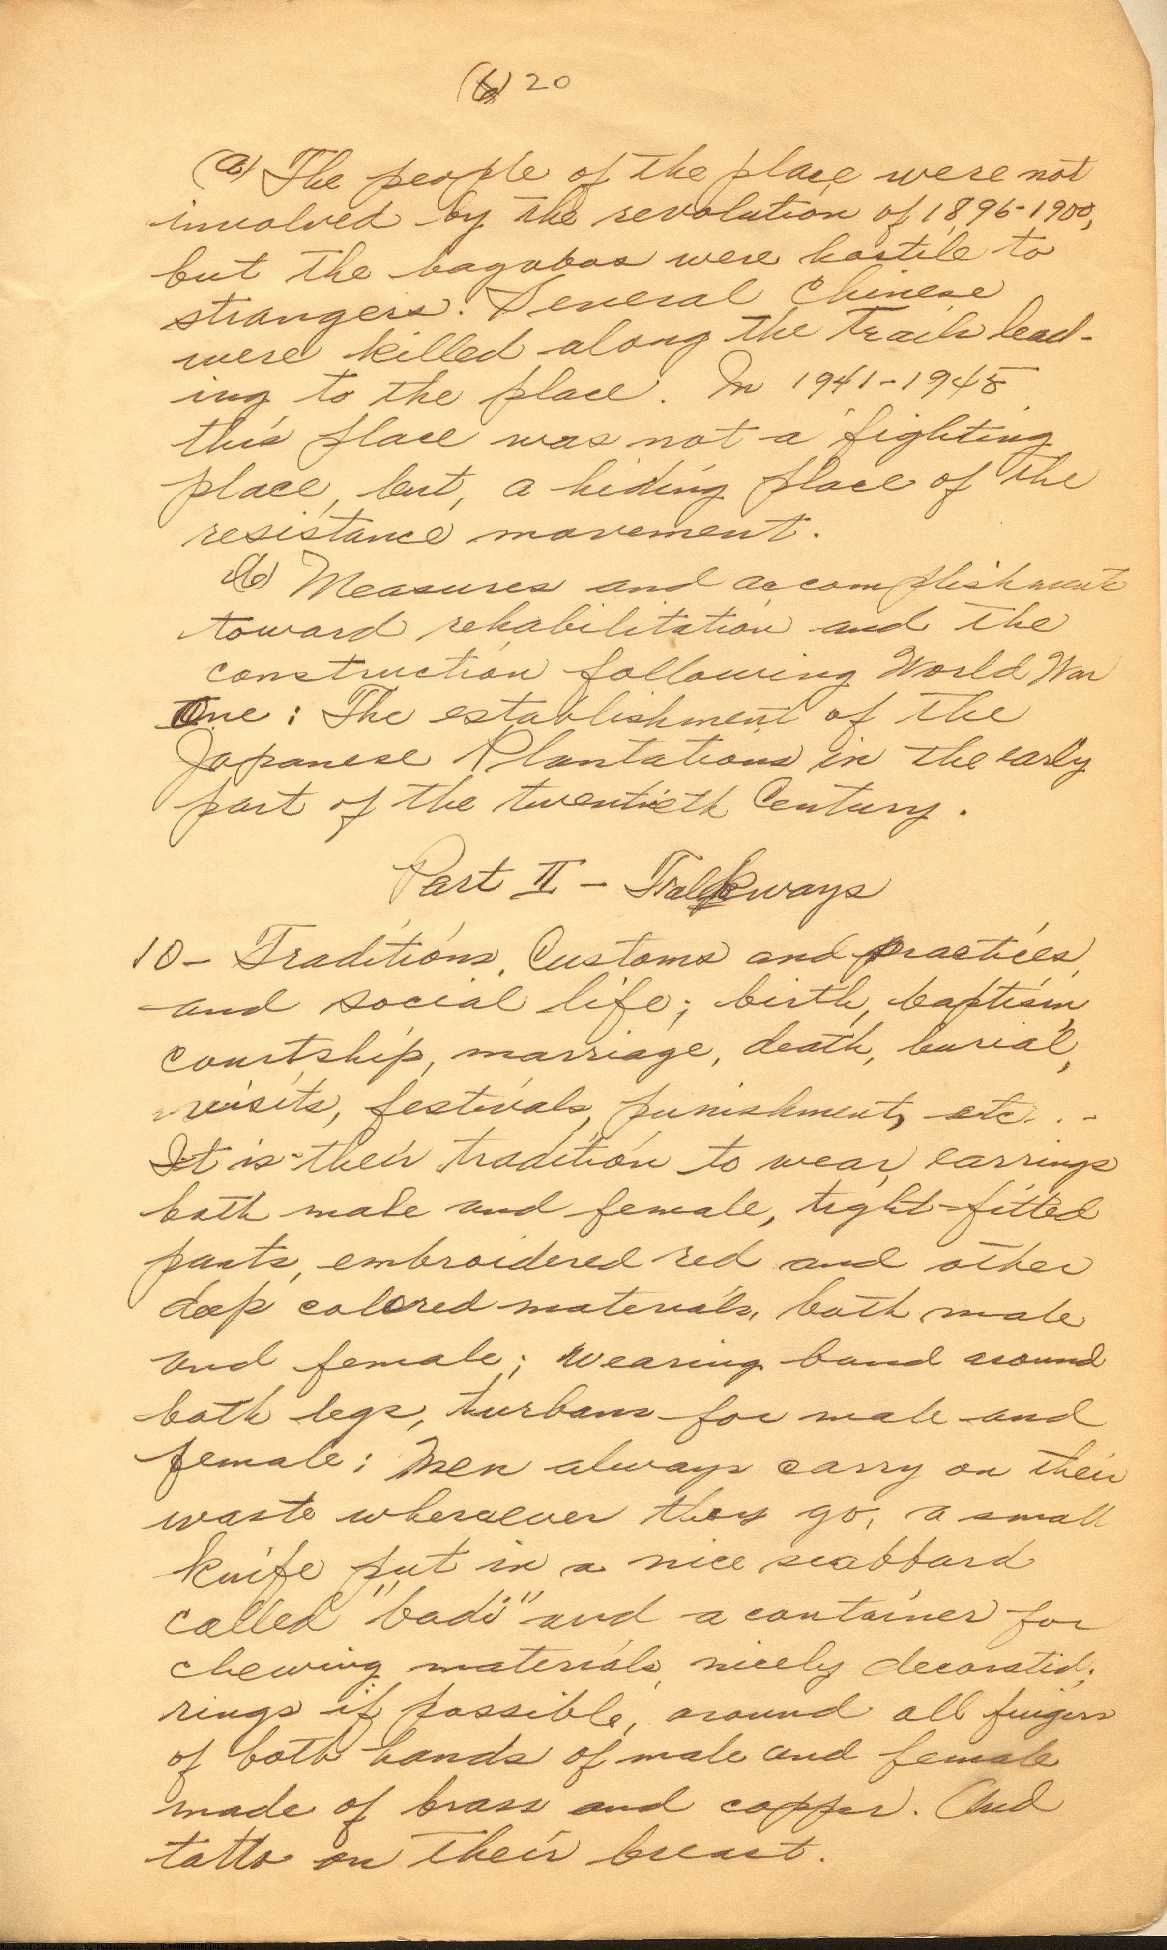 20
(a) The people of the place were not
involved by the revolution of 1896-1900,
but the bagobos were hostile to
strangers. Several Chinese
were killed along the trails lead-
ing to the place. In 1941-1945
this place was not a fighting
place, but, a hiding place of the
resistance movement.
(b) Measures and accomplishment
toward rehabilitation and the
construction following World War
One: The establishment of the
Japanese Plantations in the early
part of the twentieth Century.
Part II - Folkways
10- Traditions, Customs and practices,
and social life; birth, baptism,
courtship, marriage, death, burial,
visits, festivals, punishments, etc. . -
It is their tradition to wear earrings
both male and female, tight-fitted
pants, embroidered red and other
deep colored materials, both male
and female; wearing band around
both legs, turbans for male and
female; Men always carry on their
waste wherever they go, a small
knife put in a nice scabbard
called "badi" and a container for
chewing materials, nicely decorated;
rings if possible, around all fingers
of both hands of male and female
made of brass and copper. And
tatto on their breast.